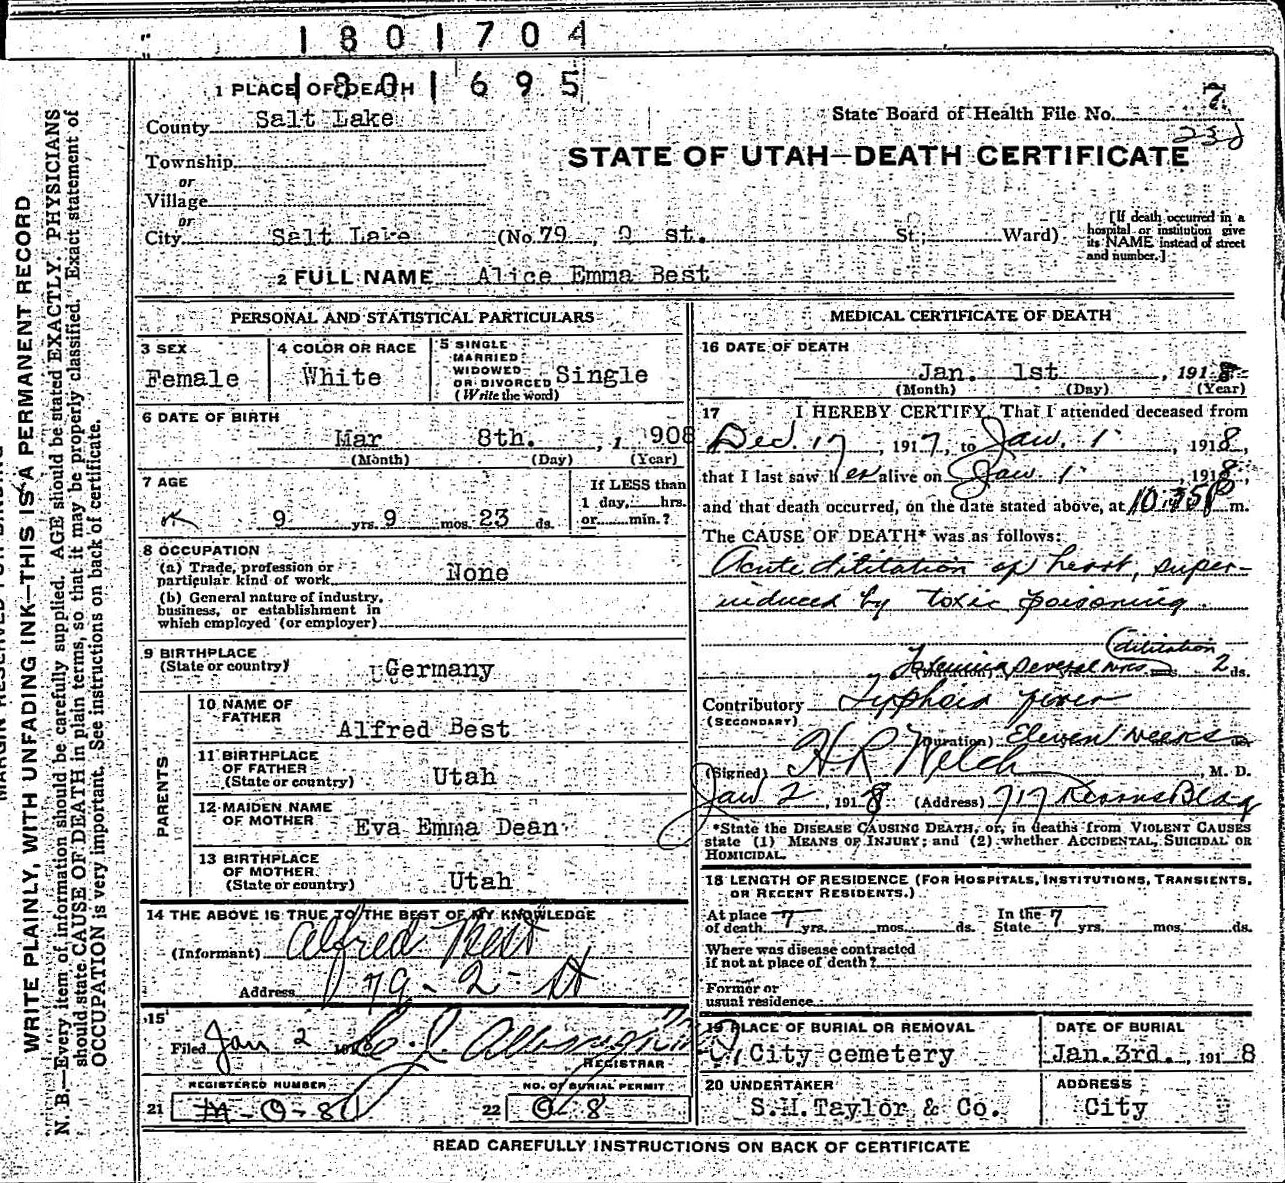 1801704
1801695
1 PLACE OF DEATH
County Salt Lake
State Board of Health File No. 7
STATE OF UTAH—DEATH CERTIFICATE
Township
or
Village
or
City Salt Lake (No. 79, Q st. St; Ward)
[If death occurred in a hospital or institution give its NAME instead of street and number.]
2 FULL NAME Alice Emma Best
PERSONAL AND STATISTICAL PARTICULARS
3 SEX
Female
4 COLOR OR RACE
White
5 SINGLE
MARRIED
WIDOWED
OR DIVORCED
(Write the word)
Single
6 DATE OF BIRTH
Mar 8th. , 1 908
(Month) (Day) (Year)
7 AGE
9 yrs. 9 mos. 23 ds.
If LESS than
1 day, hrs.
or min.?
8 OCCUPATION
(a) Trade, profession or
particular kind of work None
(b) General nature of industry,
business, or establishment in
which employed (or employer)
9 BIRTHPLACE
(State or country) Germany
PARENTS
10 NAME OF
FATHER
Alfred Best
11 BIRTHPLACE
OF FATHER
(State or country) Utah
12 MAIDEN NAME
OF MOTHER
Eva Emma Dean
13 BIRTHPLACE
OF MOTHER
(State or country) Utah
14 THE ABOVE IS TRUE TO THE BEST OF MY KNOWLEDGE
(Informant) Alfred Best
Address 79 - Q - St
15
Filed Jan 2 191
REGISTRAR
REGISTERED NUMBER
21
NO. OF BURIAL PERMIT
22 O 8
MEDICAL CERTIFICATE OF DEATH
16 DATE OF DEATH
Jan. 1st , 1918
(Month) (Day) (Year)
17 I HEREBY CERTIFY, That I attended deceased from
Dec. 17, 1917, to Jan. 1, 1918,
that I last saw her alive on Jan. 1, 1918,
and that death occurred, on the date stated above, at 10:35 P m.
The CAUSE OF DEATH* was as follows:
Acute dilitation of heart, super-
induced by toxic poisoning.
(dilitation
Toxemia several wks 2 ds.
Contributory Typhoid fever
(SECONDARY)
(Duration) Eleven weeks
(Signed) H R Welch, M. D.
Jan 2, 1918 (Address) 717 Kearns Bldg
*State the DISEASE CAUSING DEATH, or, in deaths from VIOLENT CAUSES
state (1) MEANS OF INJURY; and (2) whether ACCIDENTAL, SUICIDAL OR
HOMICIDAL.
18 LENGTH OF RESIDENCE (FOR HOSPITALS, INSTITUTIONS, TRANSIENTS,
OR RECENT RESIDENTS.)
At place
of death 7 yrs. mos. ds.
In the
State 7 yrs. mos. ds.
Where was disease contracted
if not at place of death?
Former or
usual residence
19 PLACE OF BURIAL OR REMOVAL
City cemetery
DATE OF BURIAL
Jan. 3rd., 1918
20 UNDERTAKER
S.M. Taylor & Co.
ADDRESS
City
READ CAREFULLY INSTRUCTIONS ON BACK OF CERTIFICATE
WRITE PLAINLY, WITH UNFADING INK—THIS IS A PERMANENT RECORD
N. B.—Every item of information should be carefully supplied. AGE should be stated EXACTLY. PHYSICIANS
should state CAUSE OF DEATH in plain terms, so that it may be properly classified. Exact statement of
OCCUPATION is very important. See instructions on back of certificate.